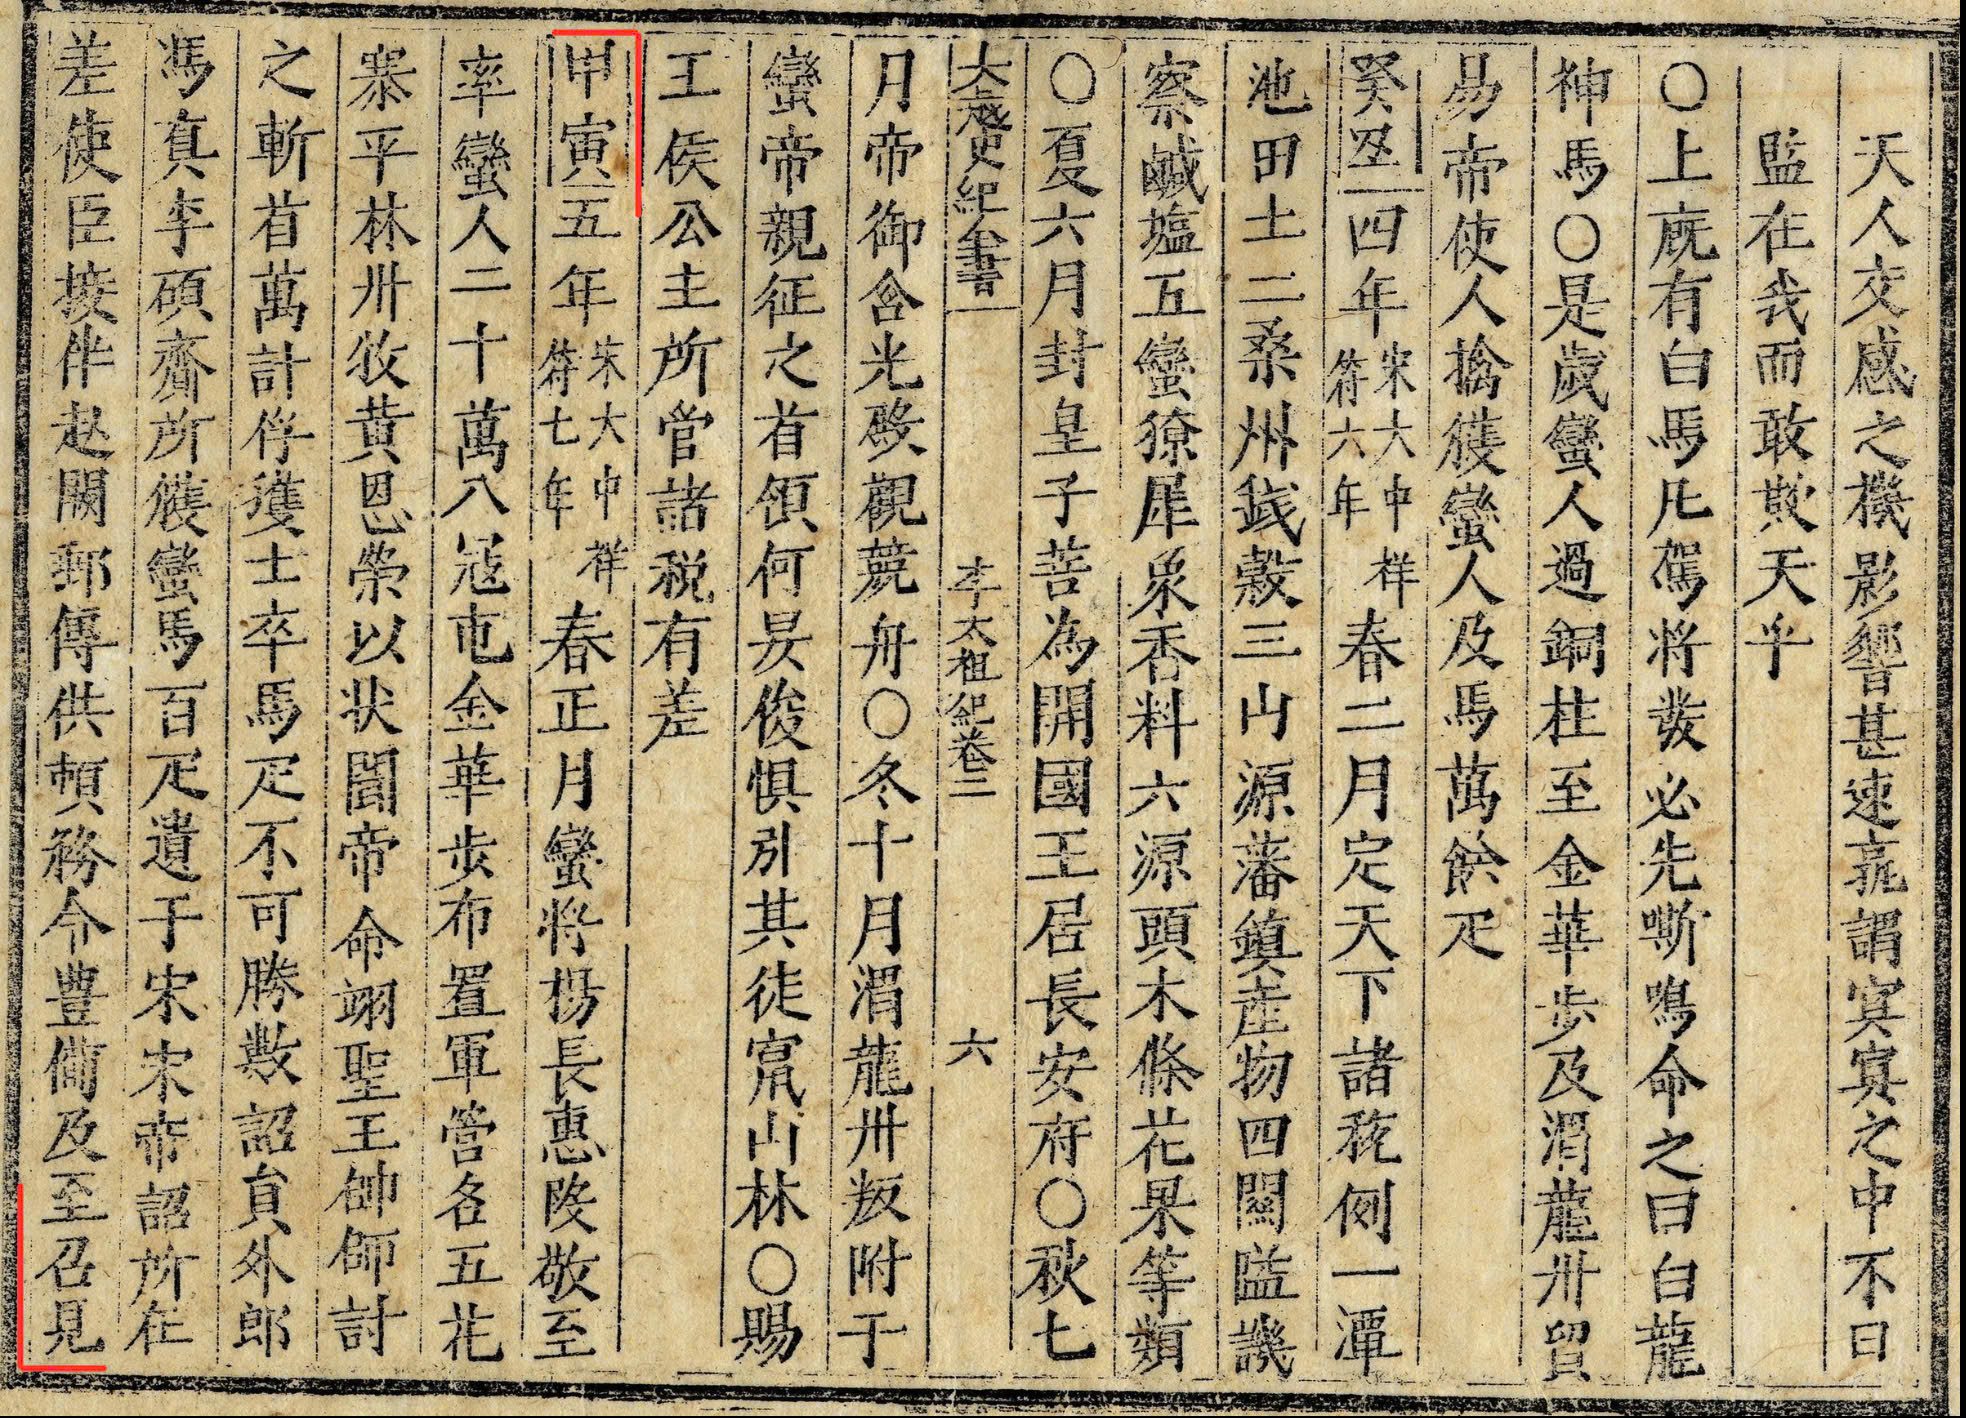 天人交感之機影響甚速孰謂冥冥之中不曰
監在我而敢欺天乎
〇上廐有白馬凡駕將發必先嘶鳴命之曰白龍
神馬〇是歲蠻人過銅柱至金華步及渭龍州貿
易帝使人擒獲蠻人及馬萬餘疋
癸丑四年宋大中祥符六年春二月定天下諸稅例一潭
池田土二桑州錢穀三山源藩鎮產物四關隘譏
察鹹塩五蠻獠犀象香料六源頭木條花果等類
〇夏六月封皇子菩為開國王居長安府〇秋七
大越史紀全書 李太祖紀卷二 六
月帝御含光殿觀競舟〇冬十月渭龍州叛附于
蠻帝親征之首領何旻俊惧引其徒竄山林〇賜
王侯公主所管諸稅有差
甲寅五年宋大中祥符七年春正月蠻將楊長惠段敬至
率蠻人二十萬入冦屯金華步布置軍營名五花
寨平林州牧黃恩榮以状聞帝命翊聖王帥師討
之斬首萬計俘獲士卒馬疋不可勝數詔員外郎
馮真李碩齎所獲蠻馬百疋遺于宋宋帝詔所在
差使臣接伴赴闕郵傳供頓務令豊備及至召見